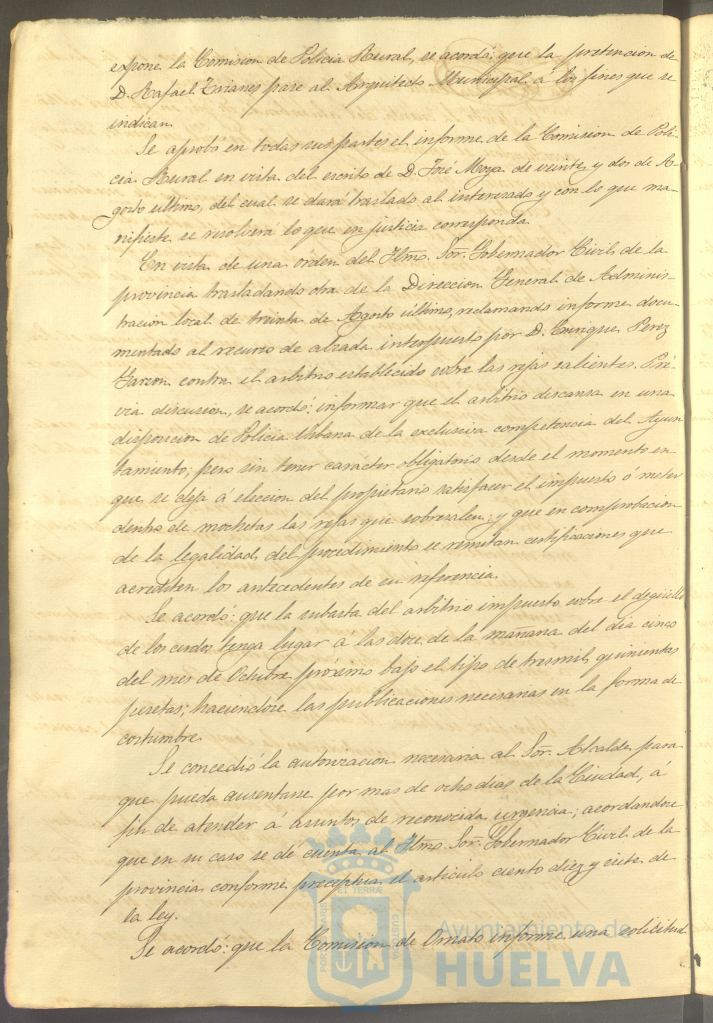 expone la Comision de Policia Rural, se acordó: que la pretencion de
D. Rafael pase al Arquitecto Municipal á los fines que se
indican.
Se aprobó en todas sus partes el informe de la Comision de Poli-
cia Rural en vista del escrito de D. José Moya de veinte y dos de A-
gosto último, del cual se dará traslado al interesado y con lo que ma-
nifieste se resolverá lo que en justicia corresponda.
En vista de una órden del Iltmo. Sor. Gobernador Civil de la
provincia trasladando otra de la Direccion General de Adminis-
tracion local de treinta de Agosto último, reclamando informe docu-
mentado al recurso de alzada interpuesto por D. Enrique Perez
Garzon contra el arbitrio establecido sobre las rejas salientes. Pré-
via discusion, se acordó: informar que el arbitrio descansa en una
disposicion de Policia Urbana de la exclusiva competencia del Ayun
tamiento; pero sin tener carácter obligatorio desde el momento en
que se deja á eleccion del propietario satisfacer el impuesto ó meter
dentro de mochetas las rejas que sobresalen; y que en comprobacion
de la legalidad del procedimiento se remitan certificaciones que
acrediten los antecedentes de su referencia.
Se acordó: que la subasta del arbitrio impuesto sobre el degüello
de los cerdos, tenga lugar á las doce de la mañana del dia cinco
del mes de Octubre próximo bajo el tipo de tresmil quinientas
pesetas; haciendose las publicaciones necesarias en la forma de
costumbre.
Se concedió la autorizacion necesaria al Sor. Alcalde para
que pueda ausentarse por mas de ocho dias de la Ciudad, á
fin de atender á asuntos de reconocida urgencia; acordandose
que en su caso se dé cuenta al Iltmo. Sor. Gobernador Civil de la
provincia conforme preceptua el articulo ciento diez y siete de
la ley.
Se acordó: que la Comision de Ornato informe una solicitud
Ayuntamiento de
HUELVA
PORTUS MARIS ET TERRAE CUSTODIA